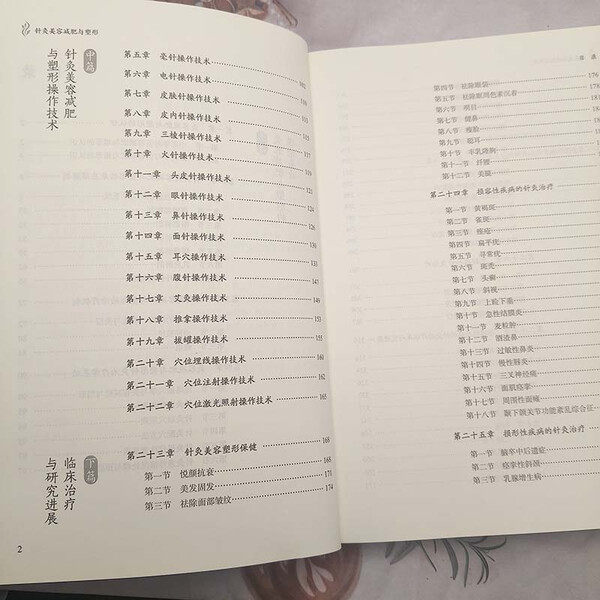 针灸美容减肥与塑形
中篇
针灸美容减肥
与塑形操作技术
第五章 毫针操作技术 102
第六章 电针操作技术
第七章 皮肤针操作技术
第八章 皮内针操作技术
第九章 三棱针操作技术
第十章 火针操作技术
第十一章 头皮针操作技术
第十二章 眼针操作技术 124
第十三章 鼻针操作技术
第十四章 面针操作技术 131
第十五章 耳穴操作技术 133
第十六章 腹针操作技术 147
第十七章 艾灸操作技术 149
第十八章 推拿操作技术 151
第十九章 拔罐操作技术 155
第二十章 穴位埋线操作技术 160
第二十一章 穴位注射操作技术 162
第二十二章 穴位激光照射操作技术 165
下篇
临床治疗
与研究进展
第二十三章 针灸美容塑形保健 168
第一节 悦颜抗衰 168
第二节 美发固发 171
第三节 祛除面部皱纹 174
2
目录
第四节 祛除眼袋 176
第五节 祛除眼周色素沉着 178
第六节 明目
第七节 健鼻
第八节 瘦脸
第九节 聪耳
第十节 丰乳隆胸
第十一节 纤腰
第十二节 美腿
第二十四章 损容性疾病的针灸治疗
第一节 黄褐斑
第二节 雀斑
第三节 痤疮
第四节 扁平疣
第五节 寻常疣
第六节 斑秃
第七节 头癣
第八节 斜视
第九节 上睑下垂
第十节 急性结膜炎
第十一节 麦粒肿
第十二节 酒渣鼻
第十三节 过敏性鼻炎
第十四节 慢性唇炎
第十五节 三叉神经痛
第十六节 面肌痉挛
第十七节 周围性面瘫
第十八节 颞下颌关节功能紊乱综合征
第二十五章 损形性疾病的针灸治疗
第一节 脑卒中后遗症
第二节 痉挛性斜颈
第三节 乳腺增生病